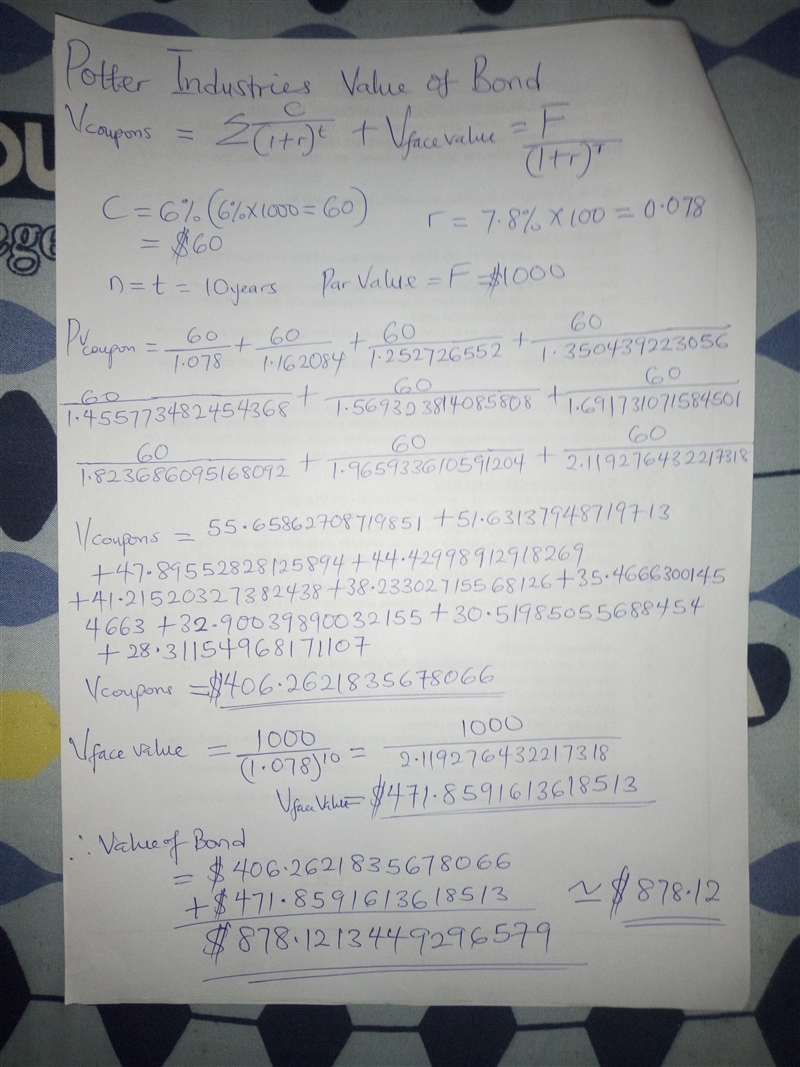 Potter Industries Value of Bond
Vcoupons = Σ C/(1+r)^t + Vface value = F/(1+r)^T
C = 6% (6% × 1000 = 60)
r = 7.8% × 100 = 0.078
= $60
n = t = 10 years Par Value = F = $1000
PVcoupon = 60/1.078 + 60/1.162084 + 60/1.252726552 + 60/1.350439223056
60/1.455773482454368 + 60/1.569323814085808 + 60/1.691731071584501
60/1.823686095168092 + 60/1.965933610591204 + 60/2.119276432217318
Vcoupons = 55.65862708719851 + 51.63137948719713
+ 47.89552828125894 + 44.42998912918269
+ 41.21520327382438 + 38.23302715568126 + 35.4666300145
4663 + 32.90039890032155 + 30.51985055688454
+ 28.31154968171107
Vcoupons = $406.2621835678066
Vface value = 1000/(1.078)^10 = 1000/2.119276432217318
Vface Value = $471.8591613618513
∴ Value of Bond
= $406.2621835678066
+ $471.8591613618513
$878.1213449296579
≃ $878.12
OU
ege
A